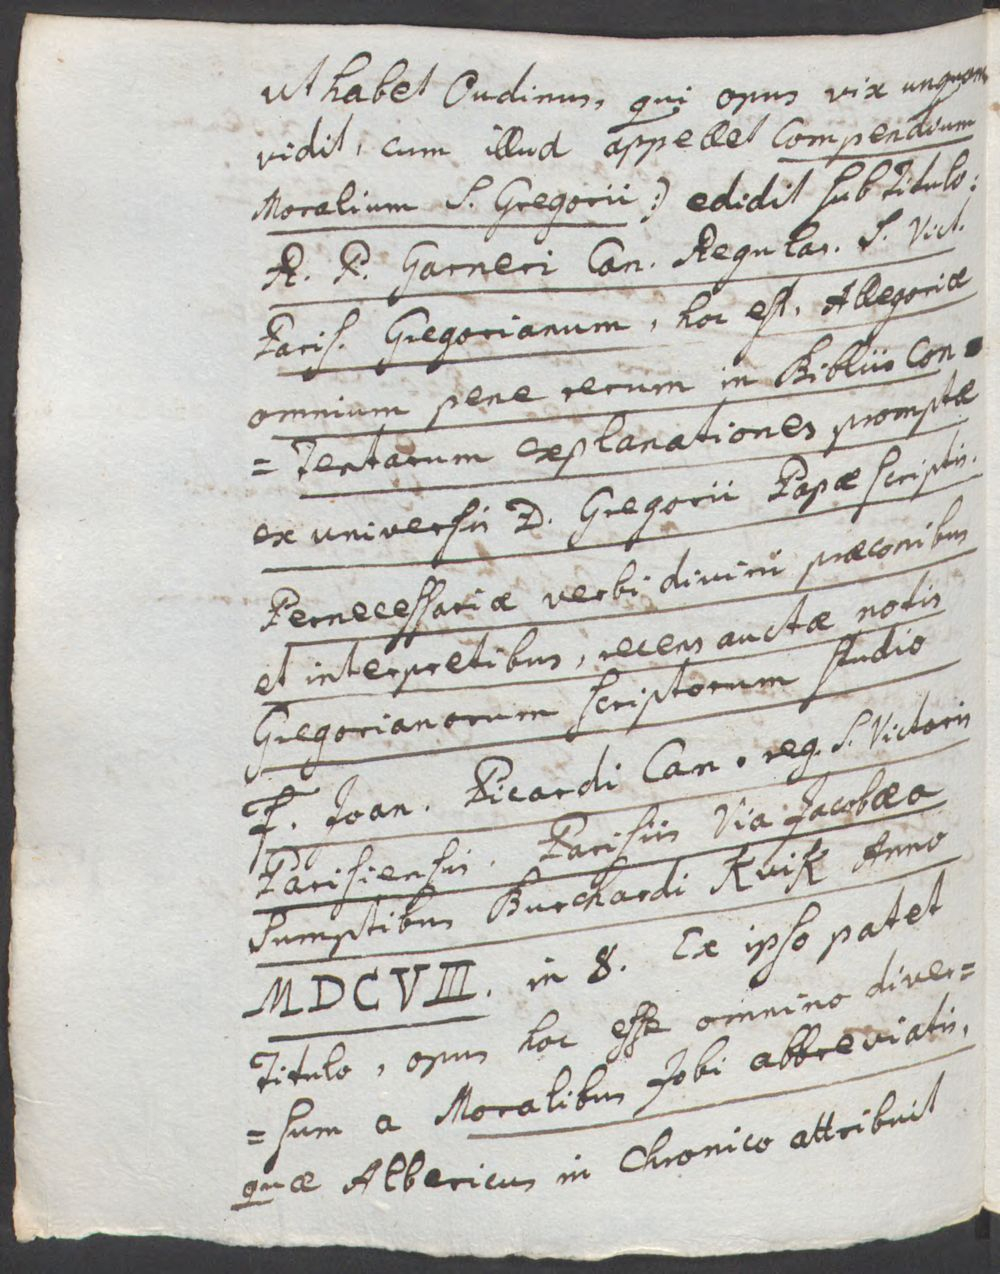 ut habet Oudinus, qui opus vix unquam
vidit, cum illud appellet Compendium
Moralium S. Gregorii) edidit sub Titulo:
R. P. Garneri Can. Regular. S. Vict.
Paris. Gregorianum, hoc est, Allegoriæ
omnium pene rerum in Bibliis Con=
=Tentarum explanationes promptæ
ex universis D. Gregorii Papæ scriptis.
Pernecessariæ verbi divini præconibus
et interpretibus, recens auctæ notis
Gregorianorum scriptorum studio
F. Joan. Picardi Can. reg. S. Victoris
Parisiensis. Parisiis Via Jacobæa
Sumptibus Burchardi Kvik Anno
MDCVIII. in 8. Ex ipso patet
Titulo, opus hoc esse omnino diver=
=sum a Moralibus Jobi abbreviatis,
quæ Albericus in Chronico attribuit